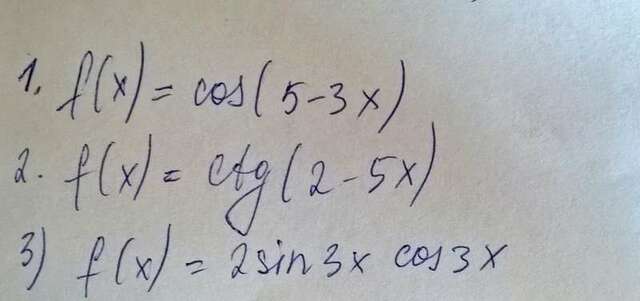 1. f(x) = cos(5-3x)
2. f(x) = ctg(2-5x)
3) f(x) = 2sin3x cos3x